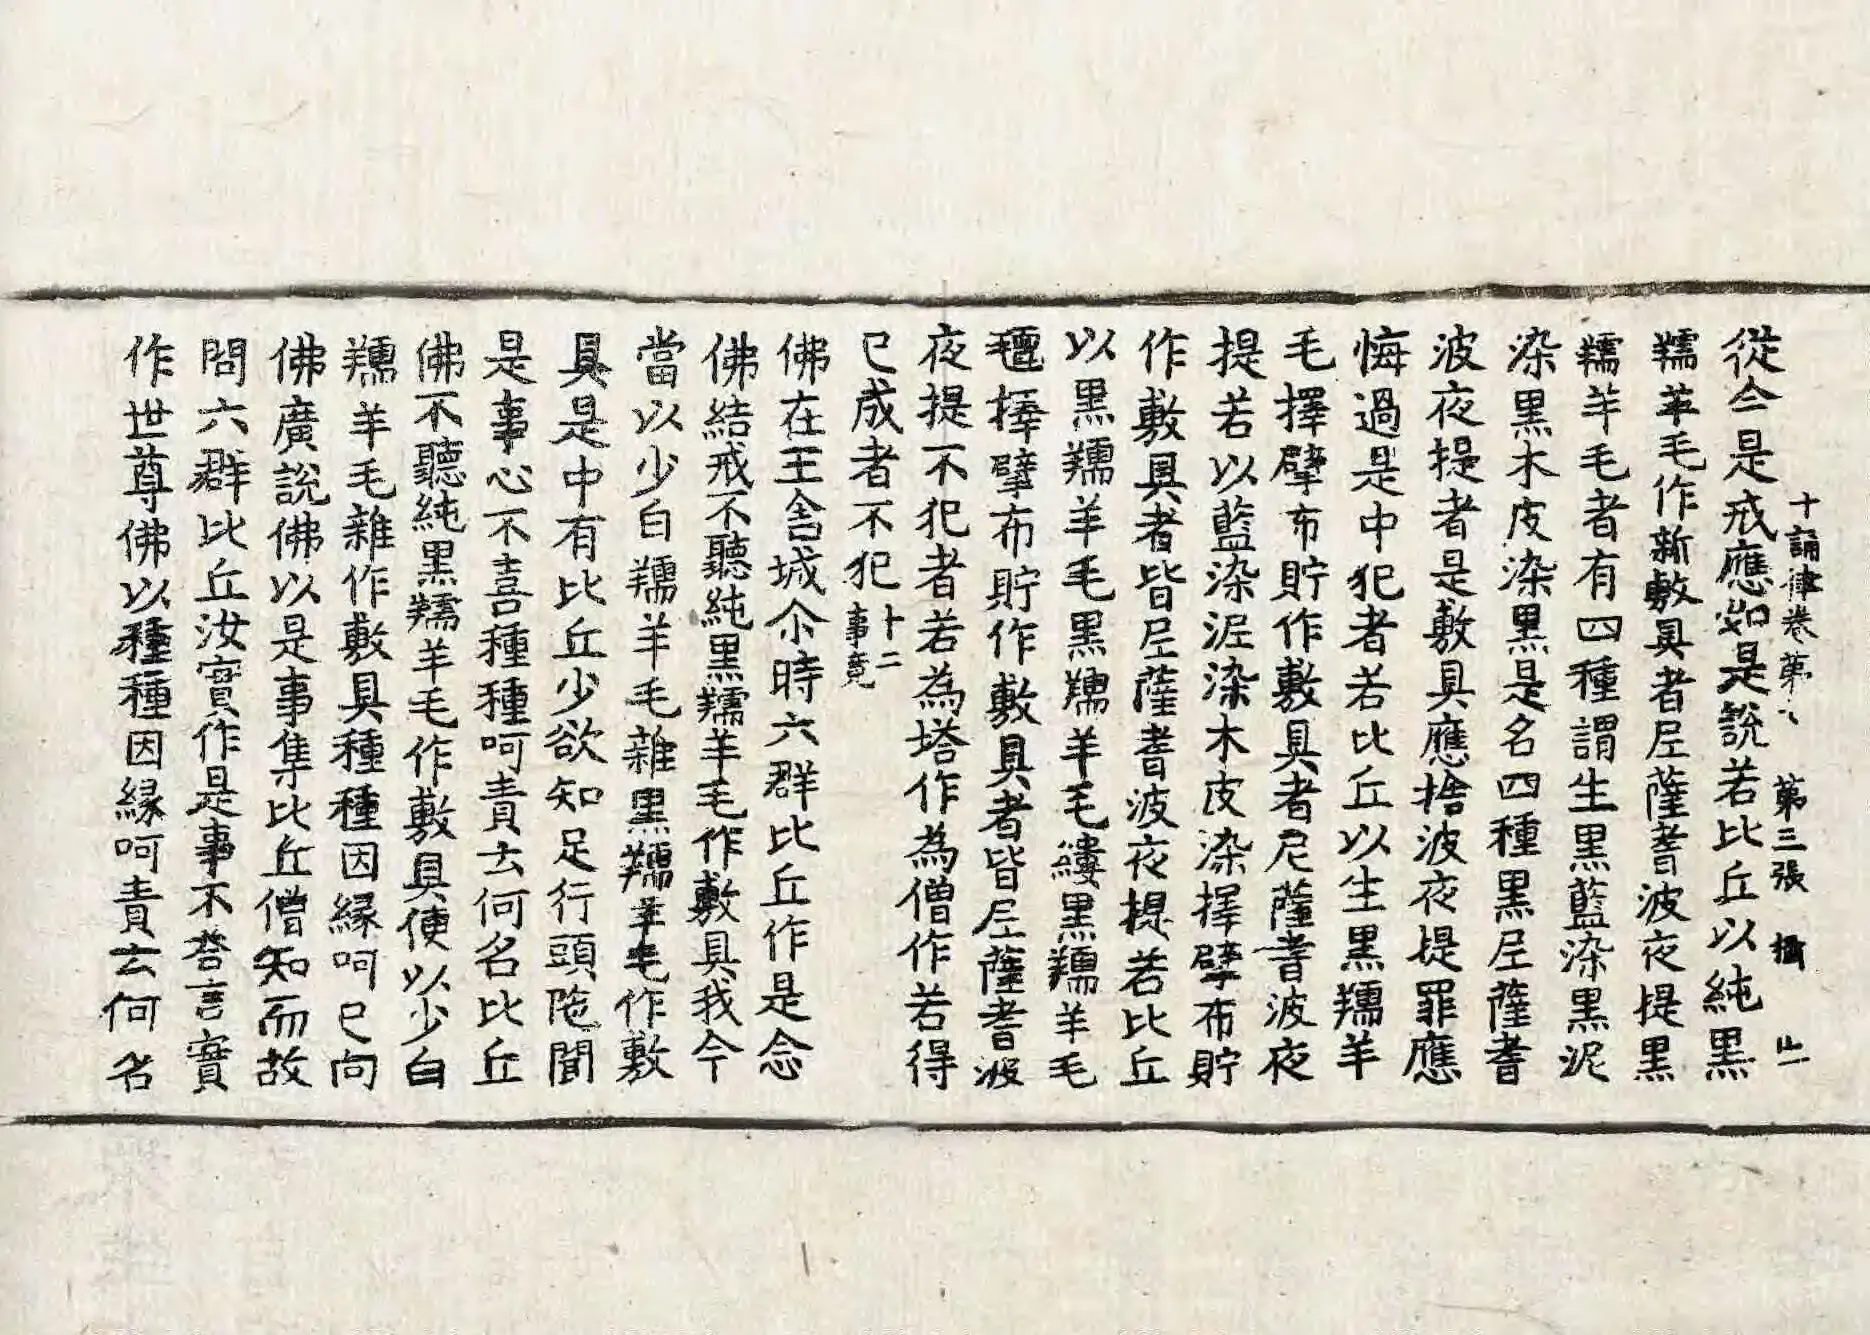 從今是戒應如是說若比丘以純黑
十誦律卷第八 第三張 攝
羺羊毛作新敷具者尼薩耆波夜提黑
羺羊毛者有四種謂生黑藍染黑泥
染黑木皮染黑是名四種黑尼薩耆
波夜提者是敷具應捨波夜提罪應
悔過是中犯者若比丘以生黑羺羊
毛擇擘布貯作敷具者尼薩耆波夜
提若以藍染泥染木皮染擇擘布貯
作敷具者皆尼薩耆波夜提若比丘
以黑羺羊毛黑羺羊毛縷黑羺羊毛
擇擘布貯作敷具者皆尼薩耆波
夜提不犯者若為塔作為僧作若得
已成者不犯十二事竟
佛在王舍城尒時六群比丘作是念
佛結戒不聽純黑羺羊毛作敷具我今
當以少白羺羊毛雜黑羺羊毛作敷
具是中有比丘少欲知足行頭陁聞
是事心不喜種種呵責云何名比丘
佛不聽純黑羺羊毛作敷具便以少白
羺羊毛雜作敷具種種因緣呵已向
佛廣說佛以是事集比丘僧知而故
問六群比丘汝實作是事不荅言實
作世尊佛以種種因緣呵責云何名